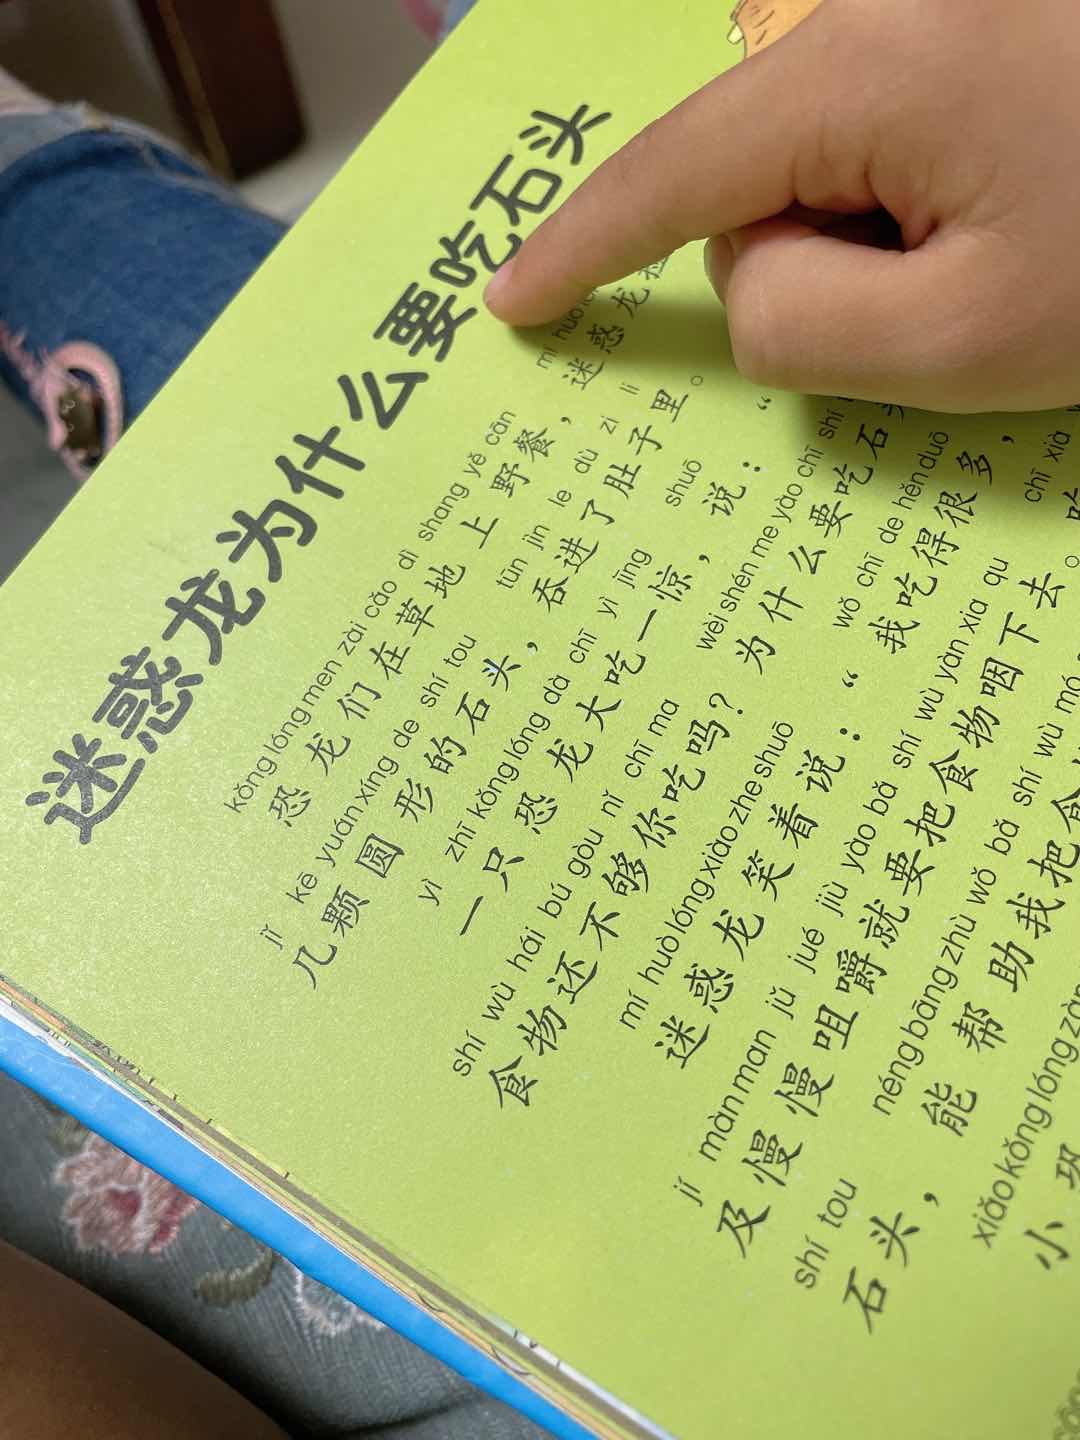 迷惑龙为什么要吃石头
kǒng lóng men zài cǎo dì shang yě cān mí huò
恐龙们在草地上野餐，迷惑龙
jǐ kē yuán xíng de shí tou tūn jìn le dù zi lǐ
几颗圆形的石头，吞进了肚子里。
yì zhī kǒng lóng dà chī yì jīng shuō
一只恐龙大吃一惊，说：“
shí wù hái bú gòu nǐ chī ma wèi shén me yào chī shí
食物还不够你吃吗？为什么要吃石头
mí huò lóng xiào zhe shuō wǒ chī de hěn duō
迷惑龙笑着说：“我吃得很多，
jí màn man jǔ jué jiù yào bǎ shí wù yàn xia qu chī xià
及慢慢咀嚼就要把食物咽下去。吃
shí tou néng bāng zhù wǒ bǎ shí wù mó
石头，能帮助我把食
xiǎo kǒng lóng
小恐